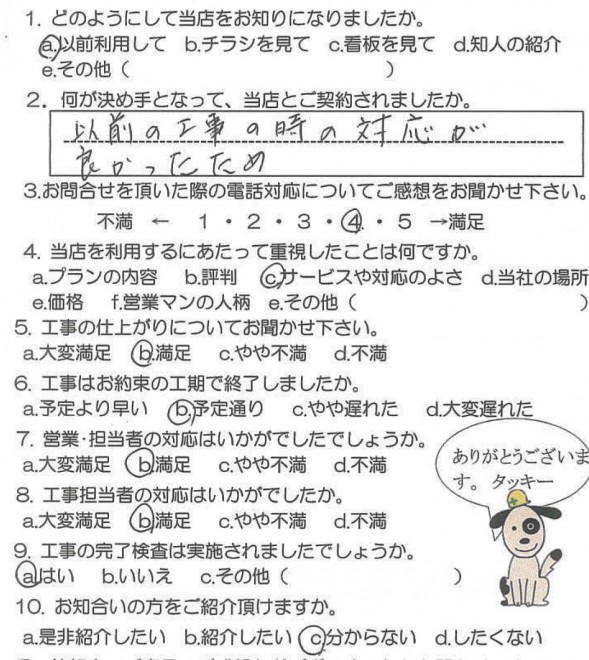 1. どのようにして当店をお知りになりましたか。
a.以前利用して b.チラシを見て c.看板を見て d.知人の紹介
e.その他（　　　　　　　　　　　　　）
2. 何が決め手となって、当店とご契約されましたか。
以前の工事の時の対応が
良かったため
3.お問合せを頂いた際の電話対応についてご感想をお聞かせ下さい。
不満 ← 1・2・3・4・5 →満足
4. 当店を利用するにあたって重視したことは何ですか。
a.プランの内容 b.評判 c.サービスや対応のよさ d.当社の場所
e.価格 f.営業マンの人柄 e.その他（　　　　　　　　　　　）
5. 工事の仕上がりについてお聞かせ下さい。
a.大変満足 b.満足 c.やや不満 d.不満
6. 工事はお約束の工期で終了しましたか。
a.予定より早い b.予定通り c.やや遅れた d.大変遅れた
7. 営業・担当者の対応はいかがでしたでしょうか。
a.大変満足 b.満足 c.やや不満 d.不満
ありがとうございま
す。 タッキー
8. 工事担当者の対応はいかがでしたか。
a.大変満足 b.満足 c.やや不満 d.不満
9. 工事の完了検査は実施されましたでしょうか。
a.はい b.いいえ c.その他（　　　　　　　　）
10. お知合いの方をご紹介頂けますか。
a.是非紹介したい b.紹介したい c.分からない d.したくない